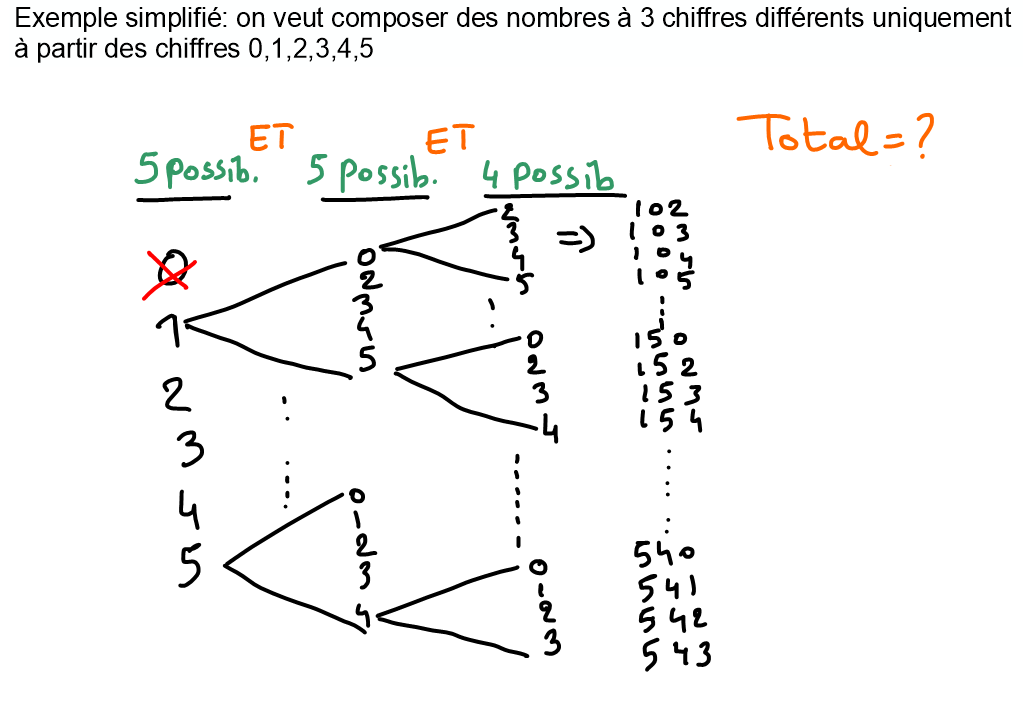 Exemple simplifié: on veut composer des nombres à 3 chiffres différents uniquement
à partir des chiffres 0,1,2,3,4,5
ET
ET
Total = ?
5 possib.
5 possib.
4 possib
0
1
2
3
4
5
0
2
3
4
5
0
1
2
3
4
2
3
4
5
0
2
3
4
0
1
2
3
=>
102
103
104
105
150
152
153
154
540
541
542
543